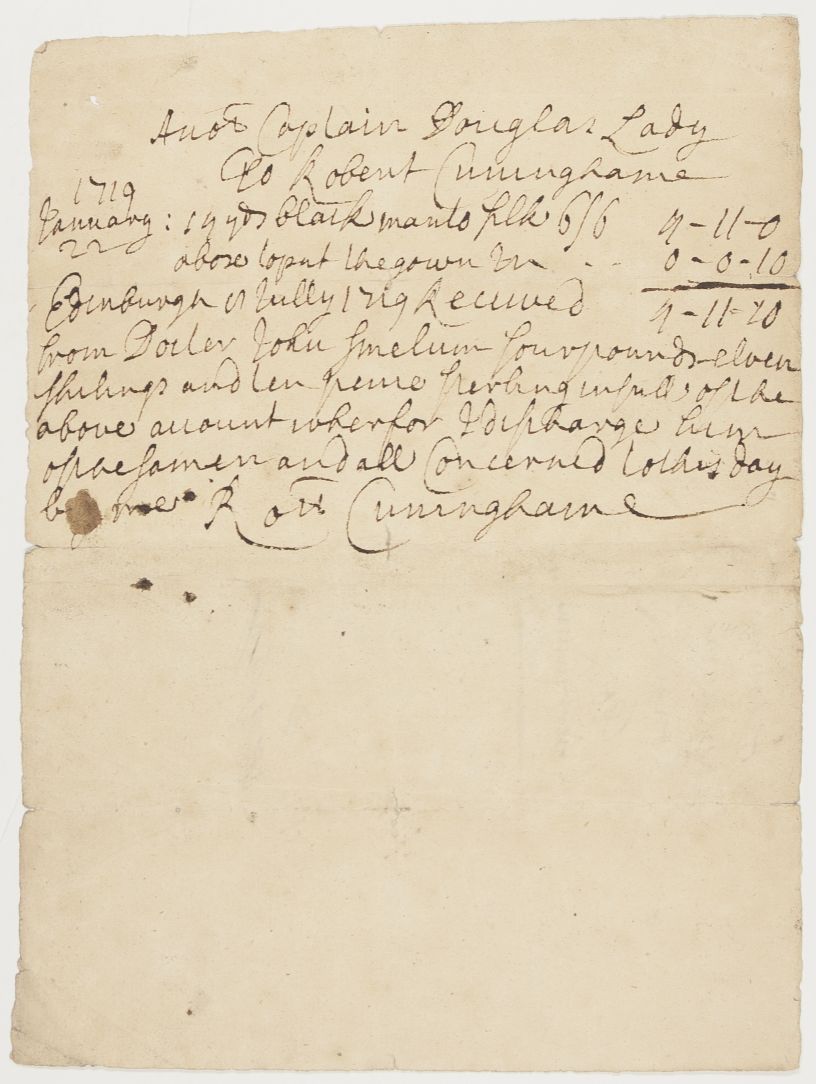 Acot Captain Douglas Lady
To Robert Cuninghame
1719
January: 14 yds black manto silk 6/6 4-11-0
22 a boxe to put the gown In - - 0-0-10
Edinburgh Jully 1719 Received 4-11-10
from Docter John four pounds elven
shilings and ten pence sterling in full of the
above account wherfor I discharge him
of the samen and all Concerned to this day
by me Rott Cuninghame